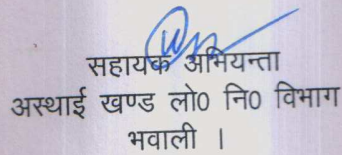 सहायक अभियन्ता
अस्थाई खण्ड लो0 नि0 विभाग
भवाली ।